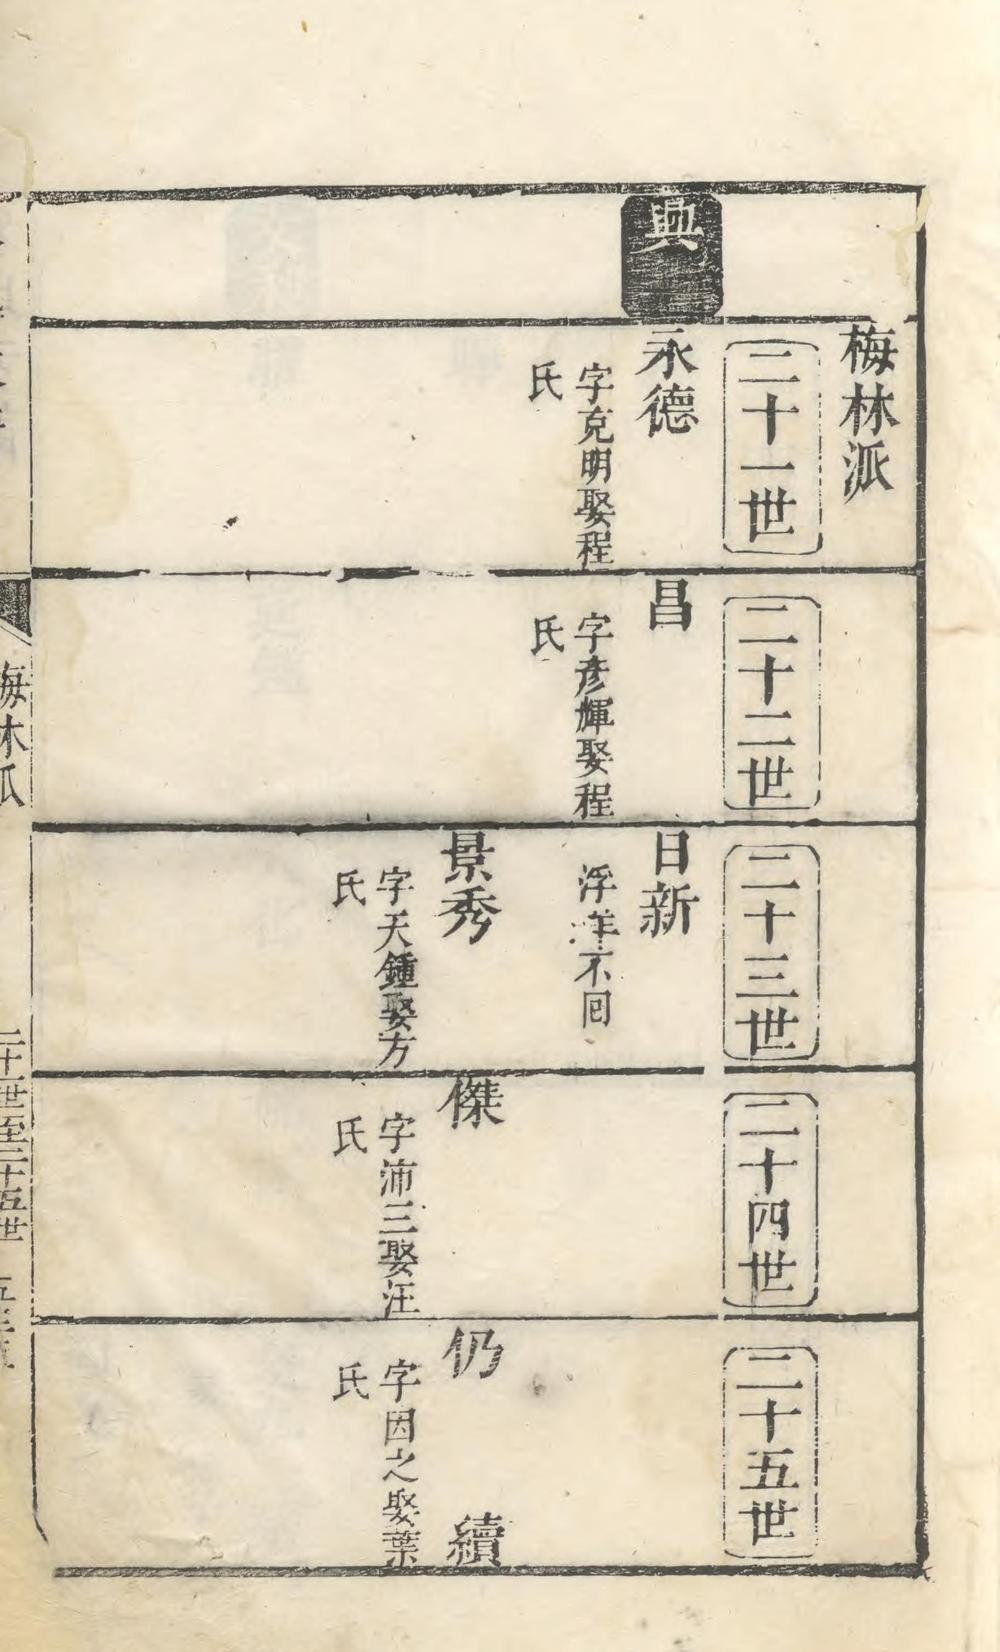 梅林派
二十一世
典
永德
字克明娶程
氏
二十二世
昌
字彥輝娶程
氏
二十三世
日新
浮洋不回
景秀
字天鍾娶方
氏
二十四世
傑
字沛三娶汪
氏
二十五世
仍
續
字因之娶葉
氏
梅林派
二十一世至二十五世